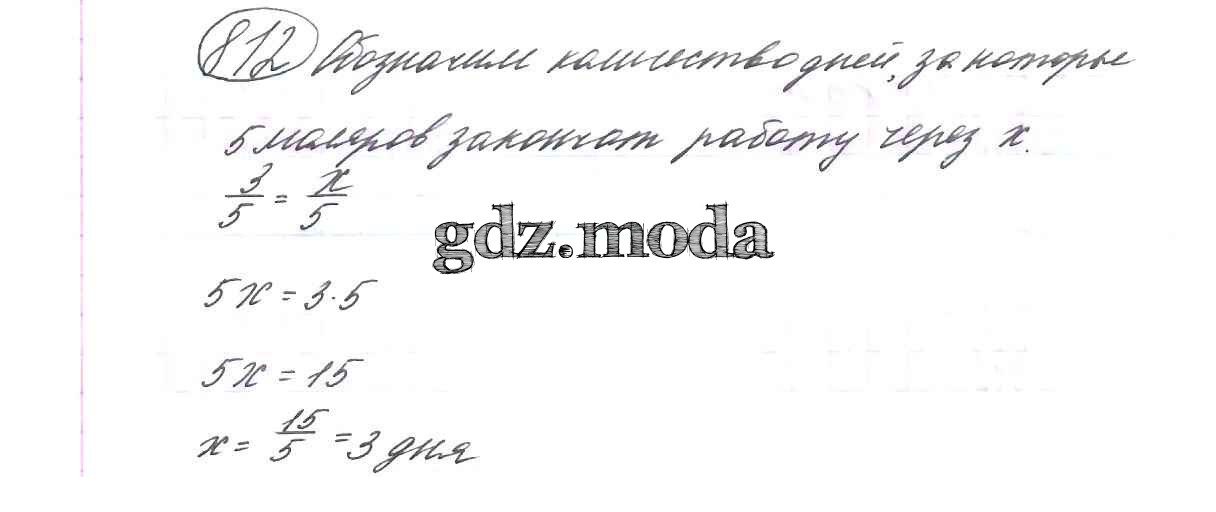 812 Обозначим количество дней, за которые
5 маляров закончат работу через x.
3/5 = x/5
gdz.moda
5x = 3·5
5x = 15
x = 15/5 = 3 дня